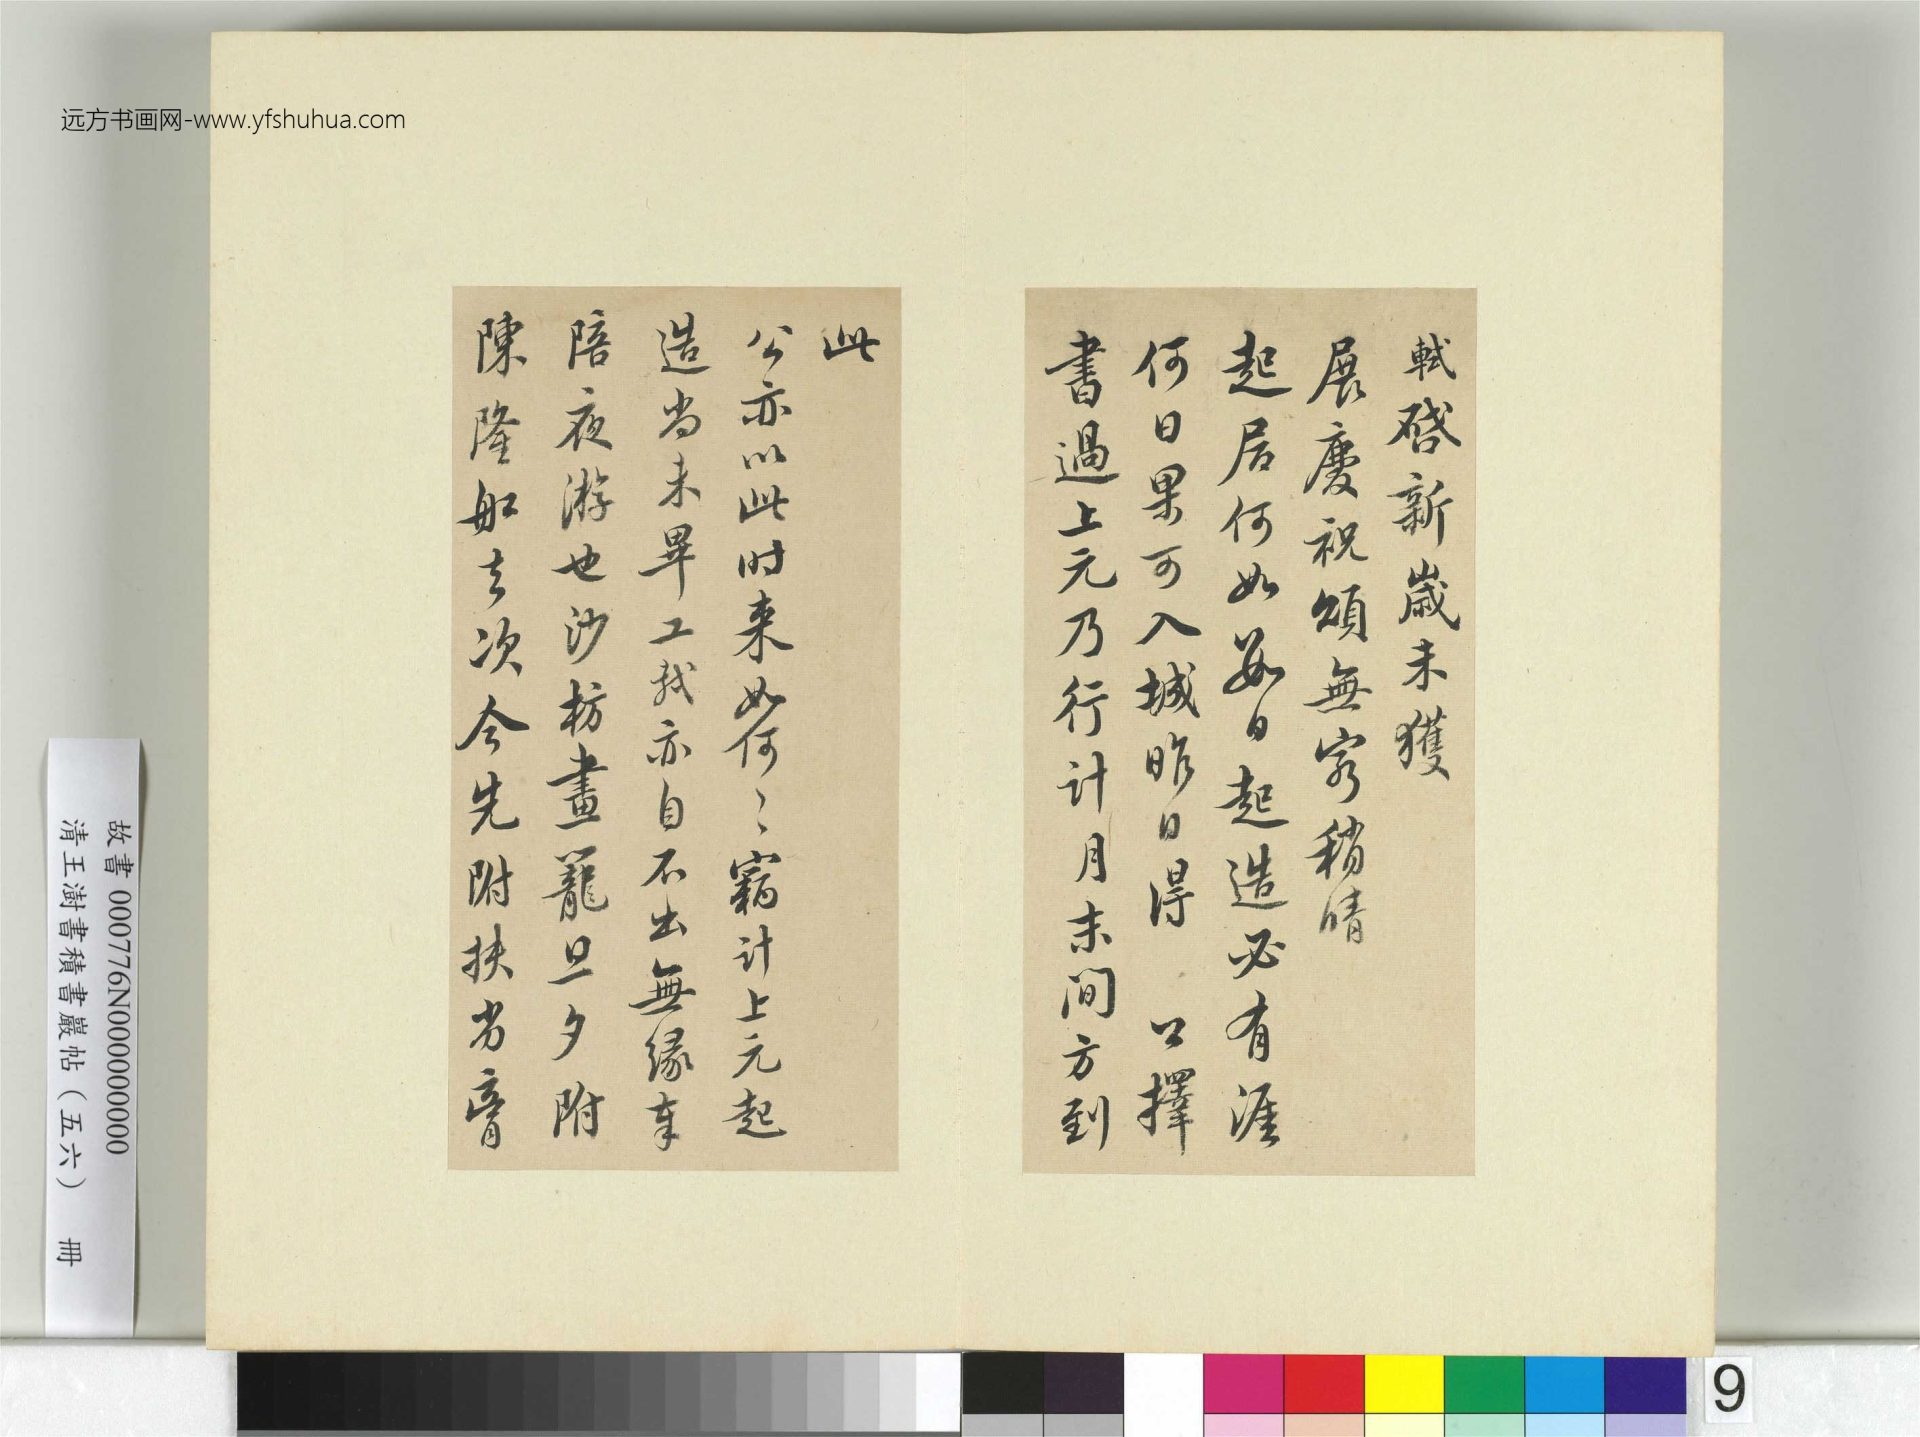 远方书画网-www.yfshuhua.com
軾啓新歲未獲
展慶祝頌無窮稍晴
起居何如數日起造必有涯
何日果可入城昨日得 公擇
書過上元乃行計月末間方到
此
公亦以此时來如何〻竊計上元起
造尚未畢工軾亦自不出無緣奉
陪夜游也沙枋畫籠旦夕附
陳隆船去次今先附扶劣膏
故書 000776N000000000
清王澍書積書巖帖（五六） 冊
9